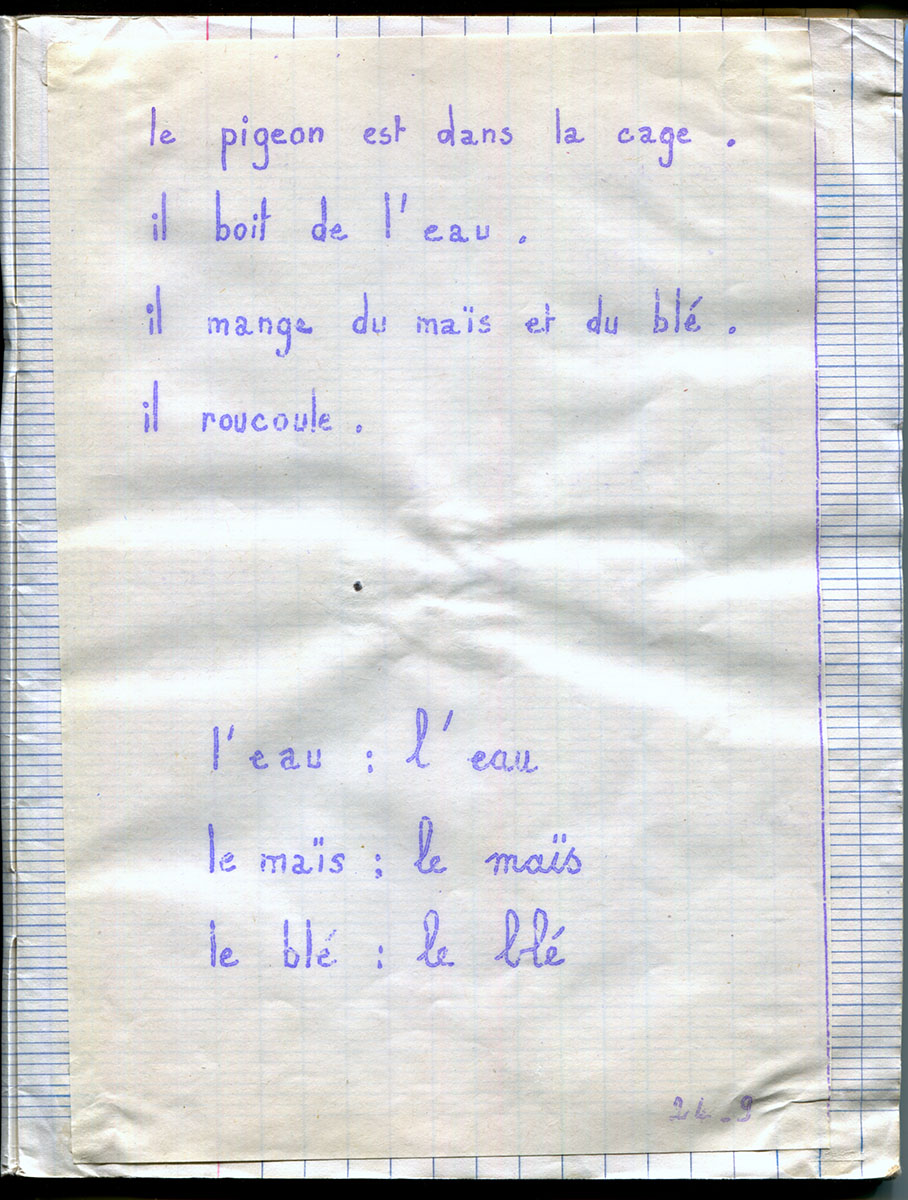 le pigeon est dans la cage .
il boit de l'eau .
il mange du maïs et du blé .
il roucoule .
l'eau : l'eau
le maïs : le maïs
le blé : le blé
24_9